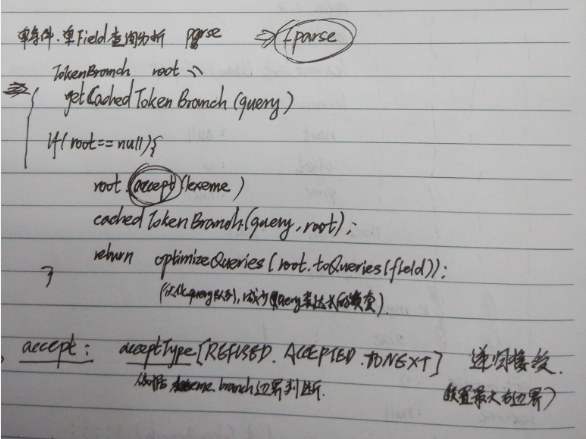 单条件.单Field查询分析 parse => [parse
TokenBranch root =
getCachedTokenBranch(query)
if(root==null){
root.accept(lexeme)
cachedTokenBranch(query,root);
return optimizeQueries(root.toQueries(field));
}
(优化query队列,减少Query表达式的嵌套)
accept: acceptType[REFUSED.ACCEPTED.TONEXT] 递归接受.
依据 branch边界判断. 设置最大右边界)